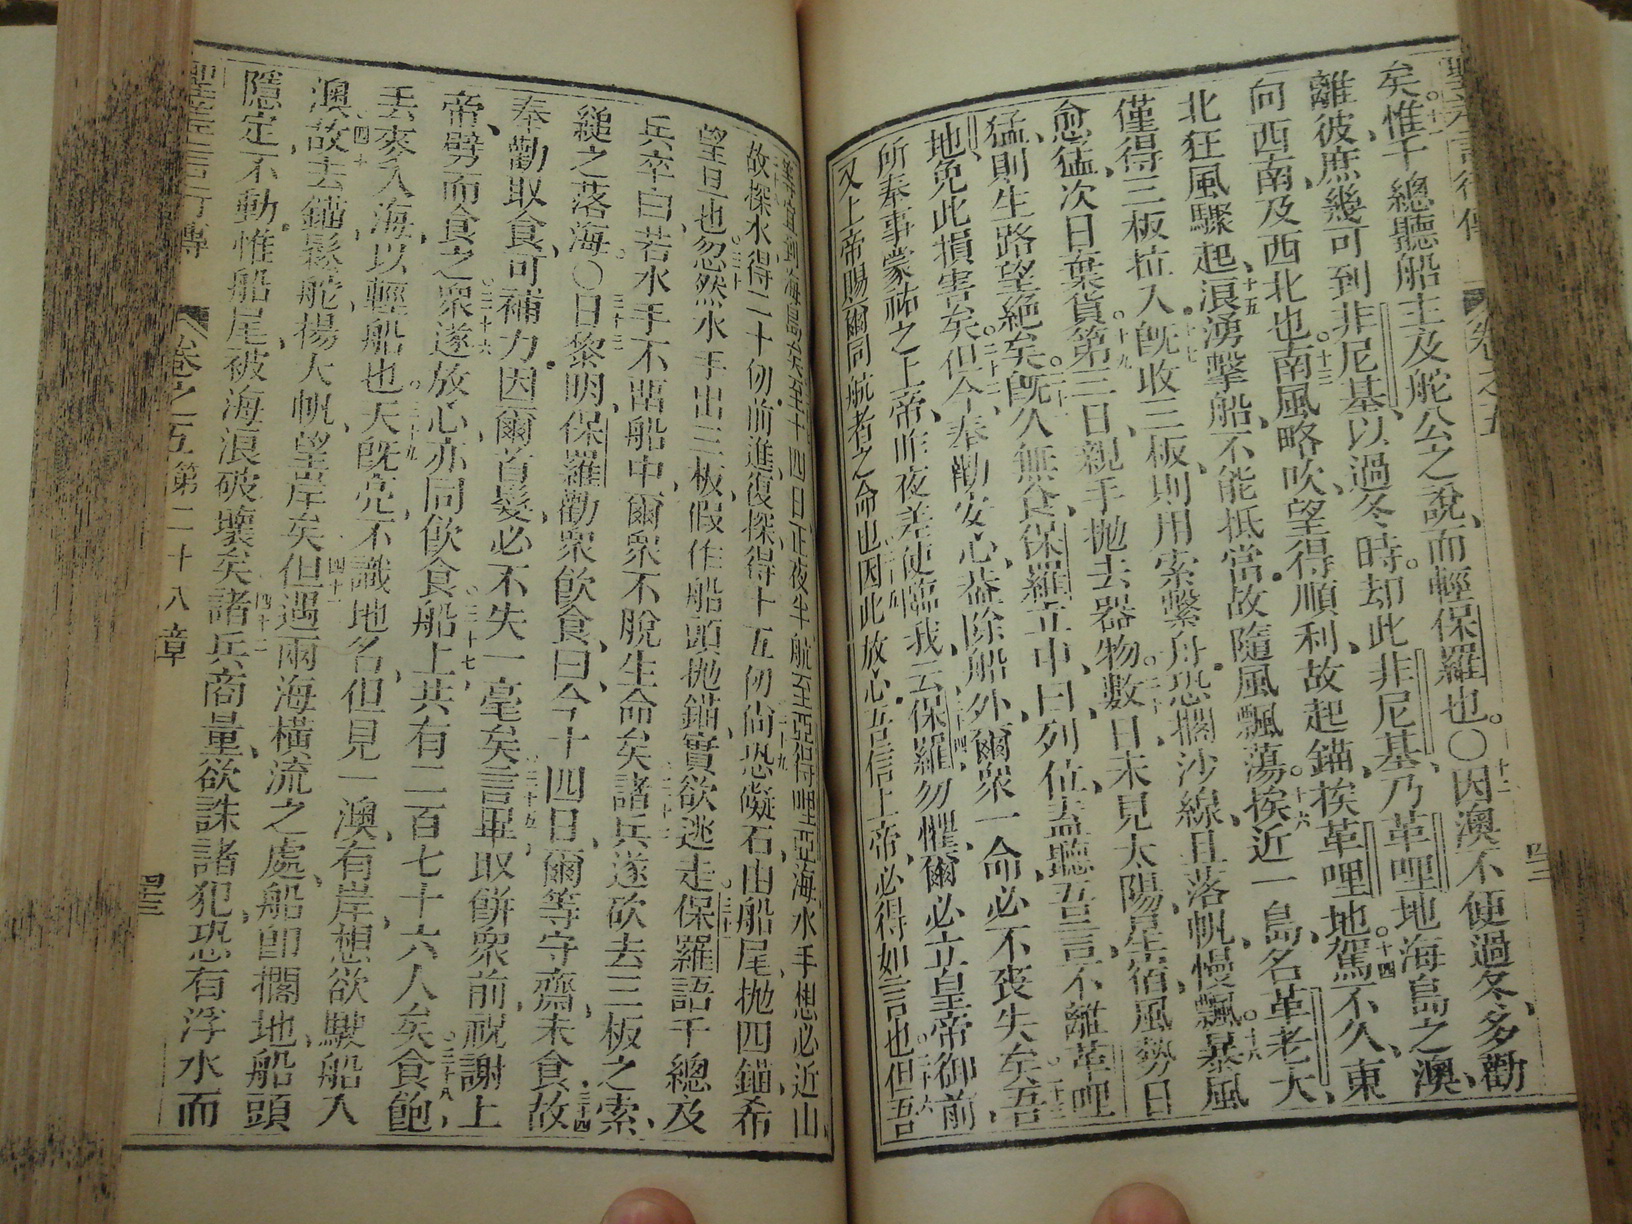 聖差言行傳 卷之五 四三
矣惟千總聽船主及舵公之說而輕保羅也○因澳不便過冬多勸
離彼庶幾可到非尼基以過冬時却此非尼基乃革哩地海島之澳
向西南及西北也南風略吹望得順利故起錨挨革哩地駕不久東
北狂風驟起浪湧擊船不能抵當故隨風飄蕩挨近一島名革老大
僅得三板拉入旣收三板則用索繫舟恐擱沙線且落帆慢飄暴風
愈猛次日棄貨第三日親手拋去器物數日未見太陽星宿風勢日
猛則生路望絕矣旣久無食保羅立中曰列位盍聽吾言不離革哩
地免此損害矣但今奉勸安心葢除船外爾眾一命必不喪失矣吾
所奉事蒙祐之上帝昨夜差使臨我云保羅勿懼爾必立皇帝御前
又上帝賜爾同航者之命也因此放心吾信上帝必得如言也但吾
到海島矣至十四日正夜半航至亞得哩亞海水手想必近山
故探水得二十仞前進復探得十五仞尚恐礙石由船尾拋四錨希
望旦也忽然水手出三板假作船頭拋錨實欲逃走保羅語千總及
兵卒曰若水手不畱船中爾眾不脫生命矣諸兵遂砍去三板之索
縋之落海○日黎明保羅勸眾飲食曰今十四日爾等守齋未食故
奉勸取食可補力因爾首髮必不失一毫矣言畢取餅眾前祝謝上
帝劈而食之眾遂放心亦同飲食船上共有二百七十六人矣食飽
丢麥入海以輕船也天旣亮不識地名但見一澳有岸想欲駛船入
澳故去錨鬆舵揚大帆望岸矣但遇兩海橫流之處船卽擱地船頭
隱定不動惟船尾被海浪破壞矣諸兵商量欲誅諸犯恐有浮水而
聖差言行傳 卷之五 第二十八章 四三